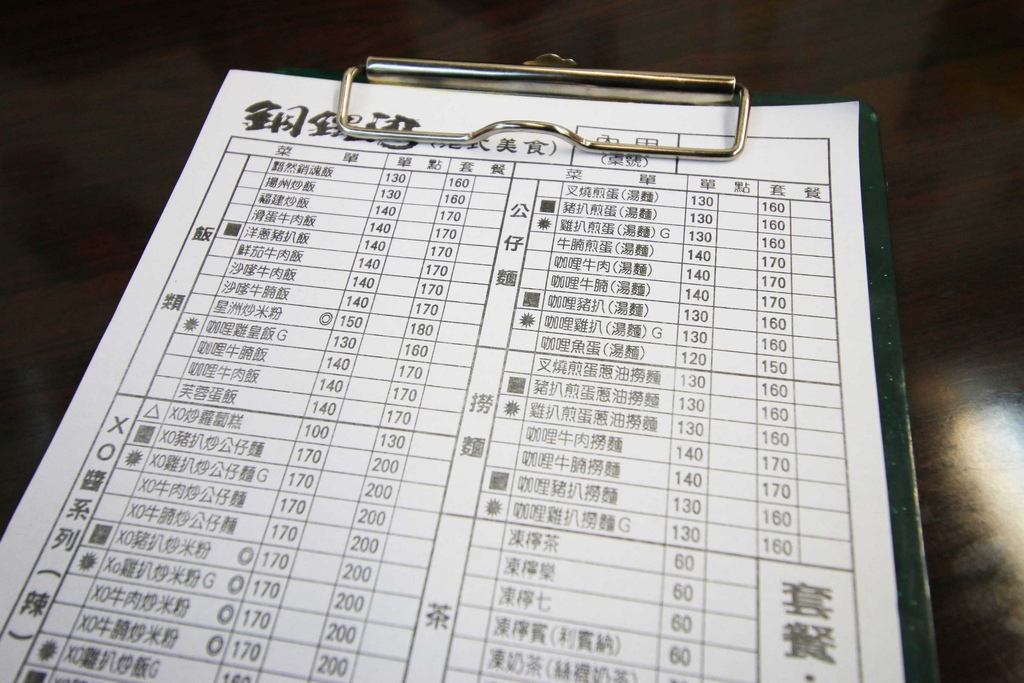 銅鑼灣(港式美食)
內用
(桌號)
菜 單 單 點 套 餐
飯類
黯然銷魂飯 130 160
揚州炒飯 130 160
福建炒飯 140 170
滑蛋牛肉飯 140 170
洋蔥豬扒飯 140 170
鮮茄牛肉飯 140 170
沙嗲牛肉飯 140 170
沙嗲牛腩飯 140 170
星洲炒米粉 ◎ 150 180
咖哩雞皇飯G 130 160
咖哩牛腩飯 140 170
咖哩牛肉飯 140 170
芙蓉蛋飯 140 170
XO醬系列(辣)
△ XO炒蘿蔔糕 100 130
XO豬扒炒公仔麵 170 200
XO雞扒炒公仔麵G 170 200
XO牛肉炒公仔麵 170 200
XO牛腩炒公仔麵 170 200
XO豬扒炒米粉 ◎ 170 200
Xo雞扒炒米粉G ◎ 170 200
XO牛肉炒米粉 ◎ 170 200
XO牛腩炒米粉 ◎ 170 200
XO雞扒炒飯G
菜 單 單 點 套 餐
公仔麵
叉燒煎蛋(湯麵) 130 160
豬扒煎蛋(湯麵) 130 160
雞扒煎蛋(湯麵) G 130 160
牛腩煎蛋(湯麵) 140 170
咖哩牛肉(湯麵) 140 170
咖哩牛腩(湯麵) 140 170
咖哩豬扒(湯麵) 130 160
咖哩雞扒(湯麵) G 130 160
咖哩魚蛋(湯麵) 120 150
撈麵
叉燒煎蛋蔥油撈麵 130 160
豬扒煎蛋蔥油撈麵 130 160
雞扒煎蛋蔥油撈麵 130 160
咖哩牛肉撈麵 140 170
咖哩牛腩撈麵 140 170
咖哩豬扒撈麵 130 160
咖哩雞扒撈麵G 130 160
茶
凍檸茶 60
凍檸樂 60
凍檸七 60
凍檸賓(利賓納) 60
凍奶茶(絲襪奶茶)
套餐